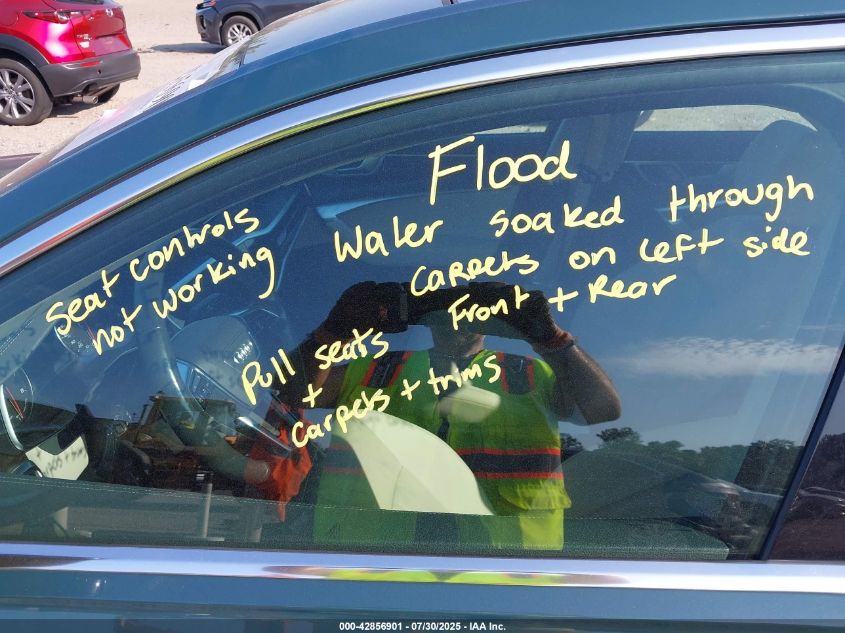 Flood
Water soaked through
carpets on left side
Front + Rear
seat controls
not working
Pull seats
+
carpets + trims
000-42856901 - 07/30/2025 - IAA Inc.